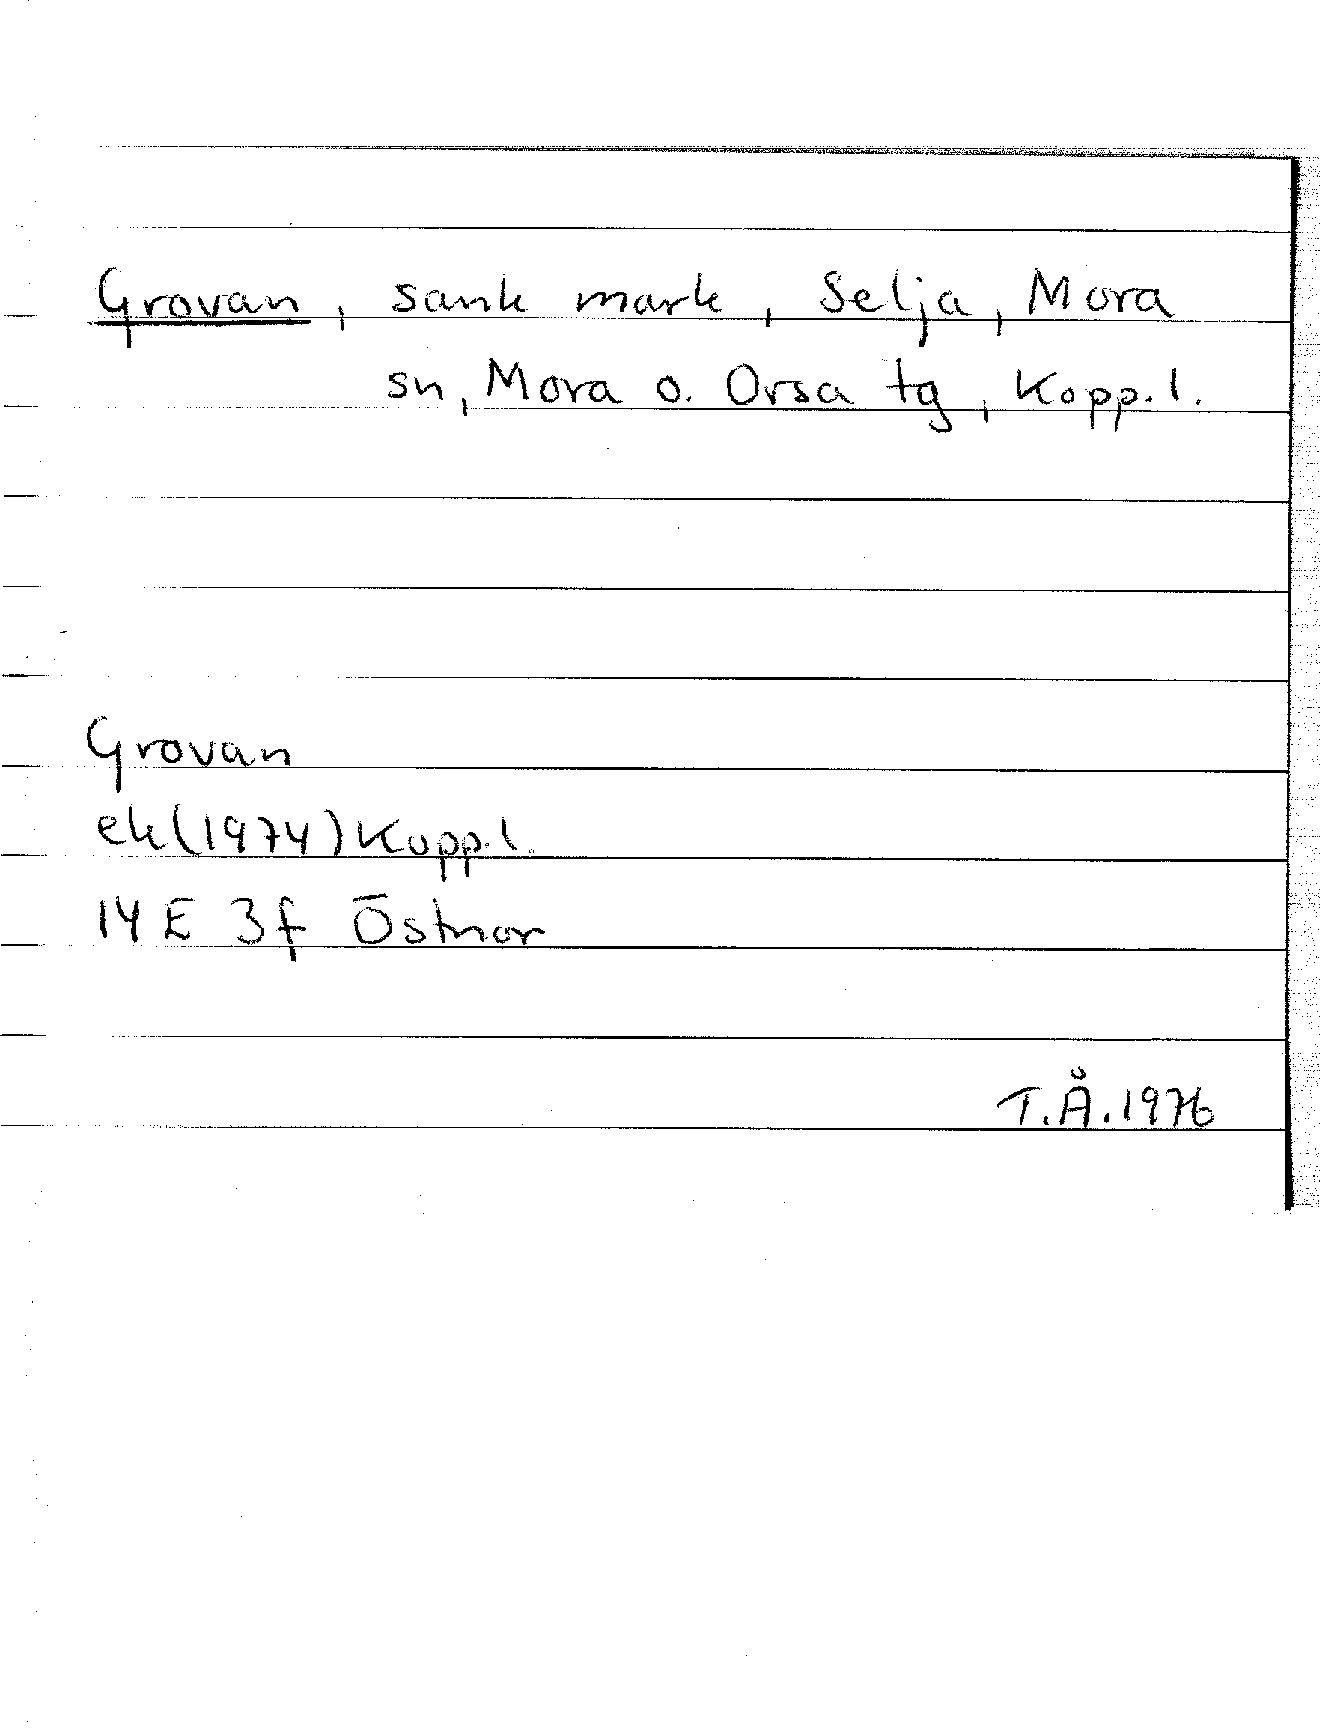 Grovan, sank mark, Selja, Mora
sn, Mora o. Orsa tg, Kopp.l.
Grovan
ek(1974) Kopp.l.
14 E 3f Östnor
T.Å.1976